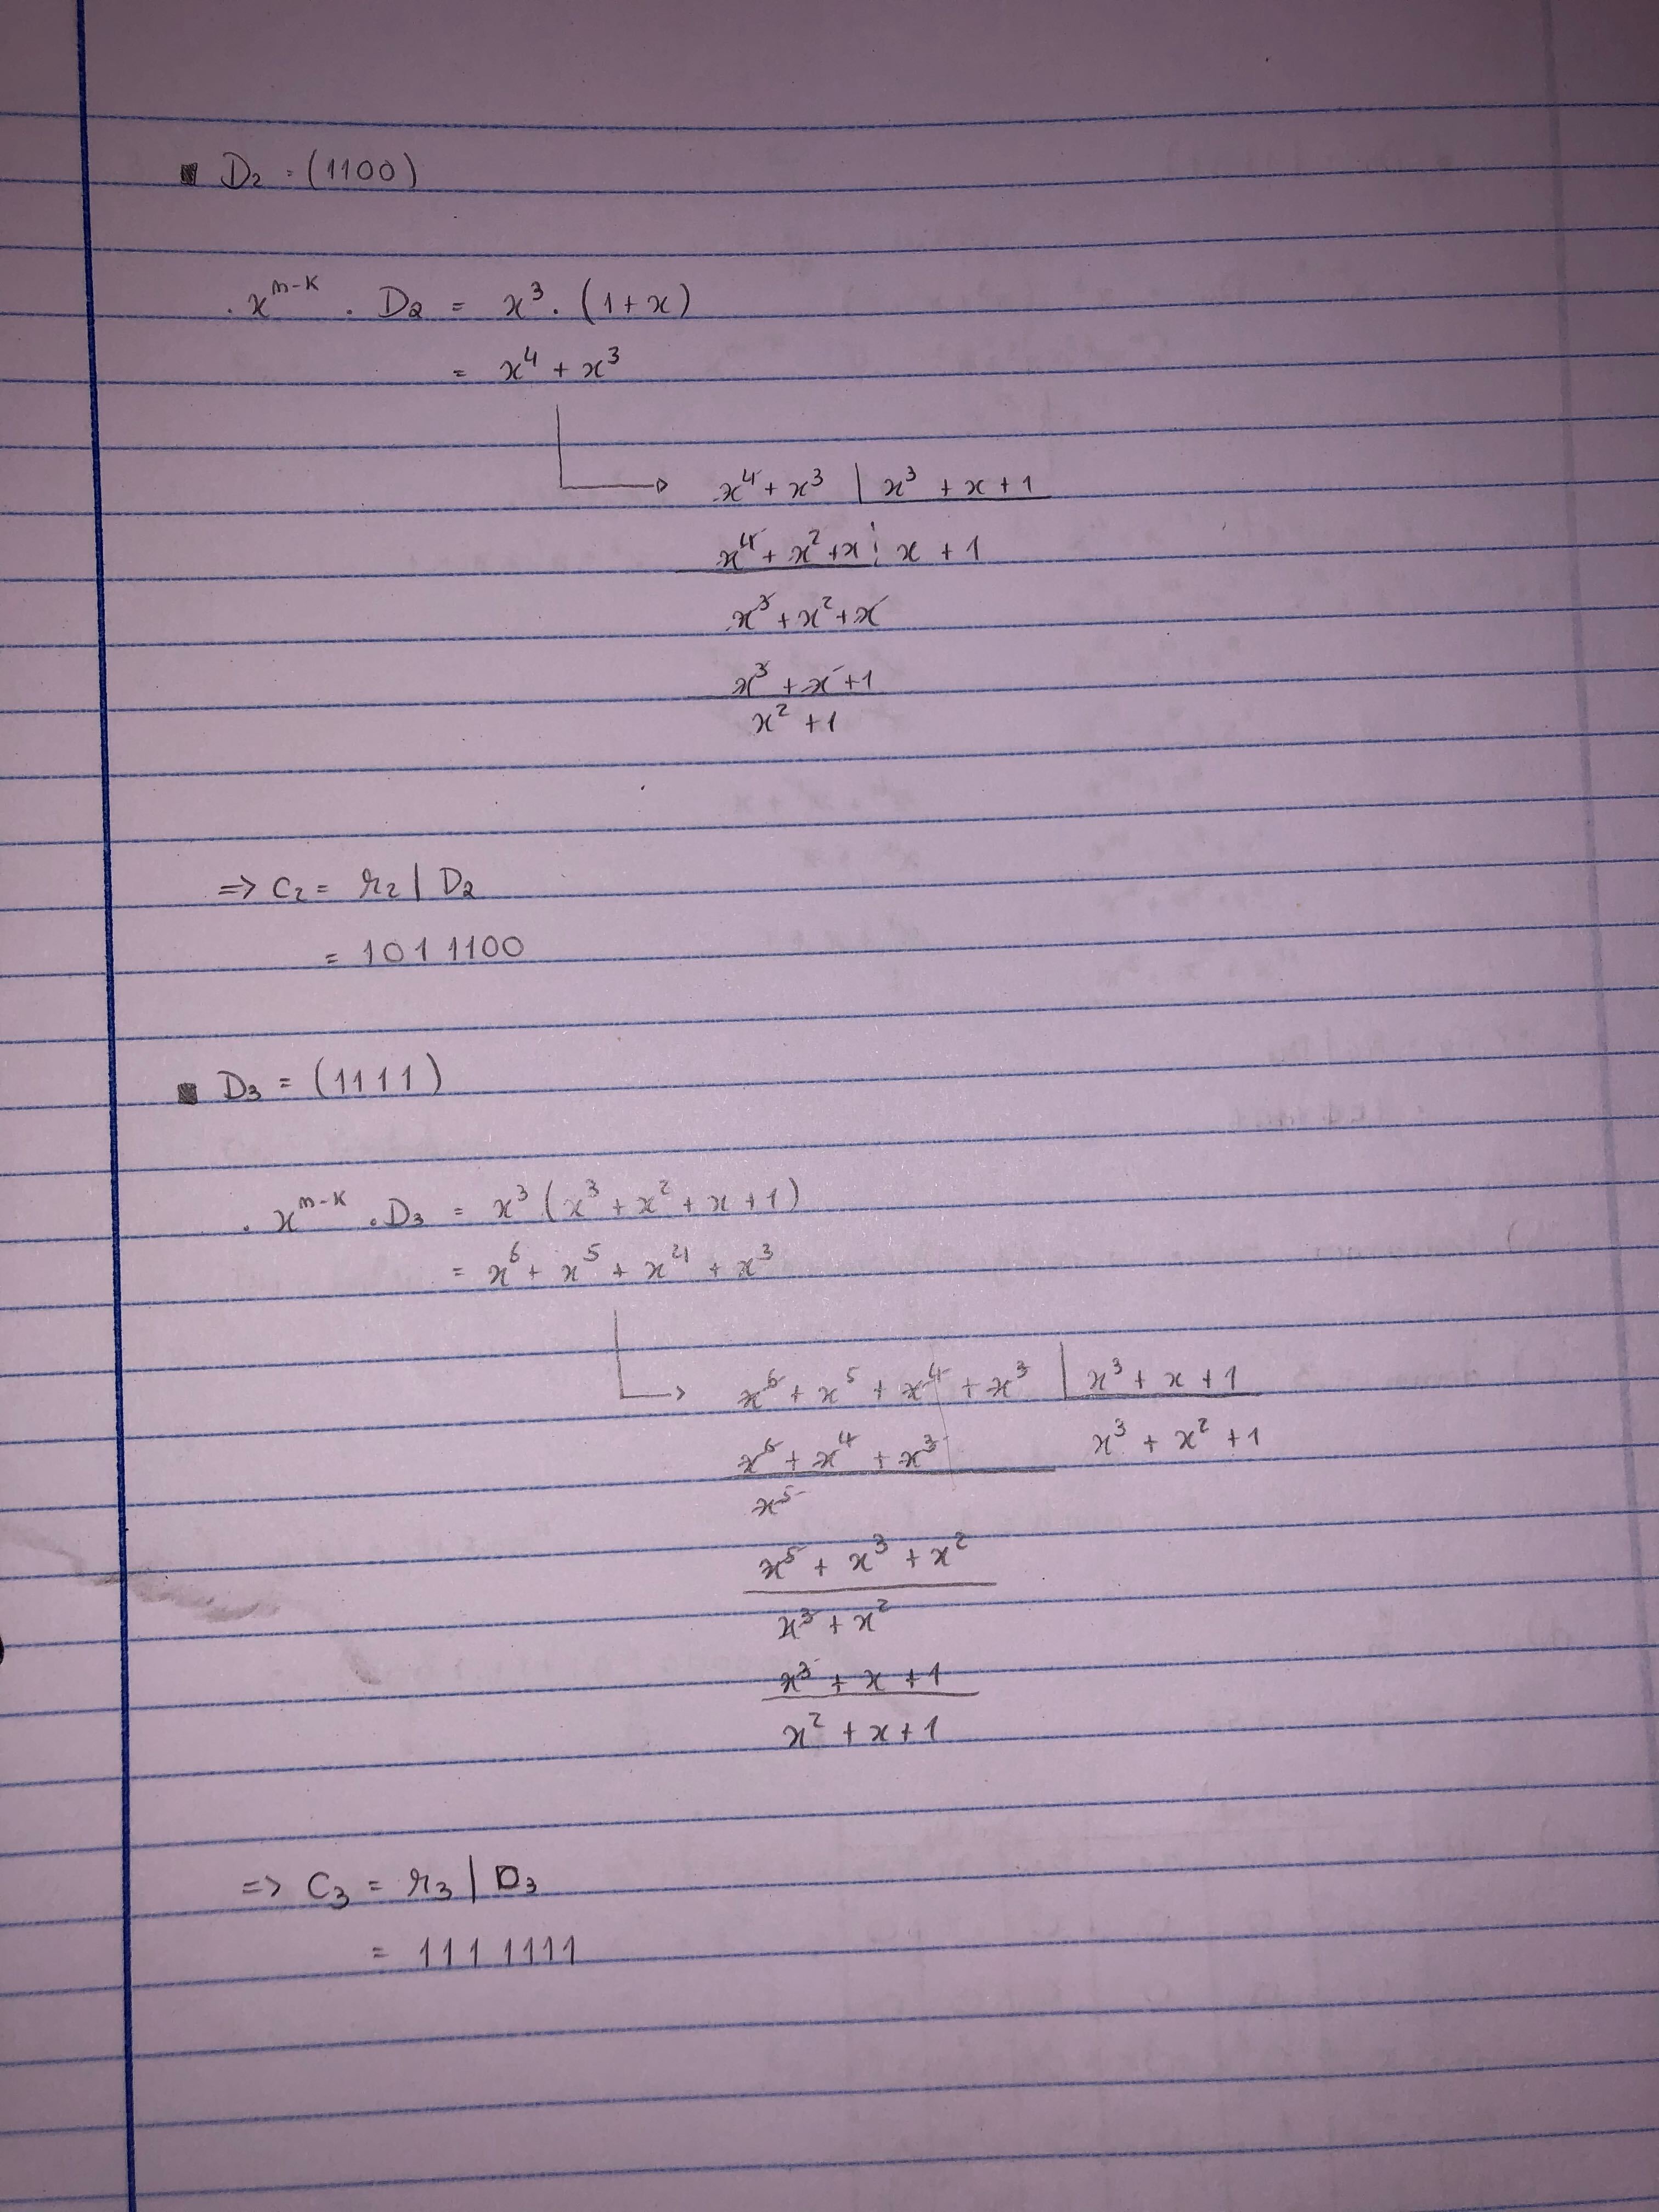 ■ D₂ = (1100)
. xⁿ⁻ᴷ . D₂ = x³ . (1 + x)
= x⁴ + x³
x⁴ + x³ | x³ + x + 1
x⁴ + x² + x | x + 1
x³ + x² + x
x³ + x + 1
x² + 1
=> C₂ = r₂ | D₂
= 101 1100
■ D₃ = (1111)
. xⁿ⁻ᴷ . D₃ = x³ (x³ + x² + x + 1)
= x⁶ + x⁵ + x⁴ + x³
x⁶ + x⁵ + x⁴ + x³ | x³ + x + 1
x⁶ + x⁴ + x³ x³ + x² + 1
x⁵
x⁵ + x³ + x²
x³ + x²
x³ + x + 1
x² + x + 1
=> C₃ = r₃ | D₃
= 111 1111